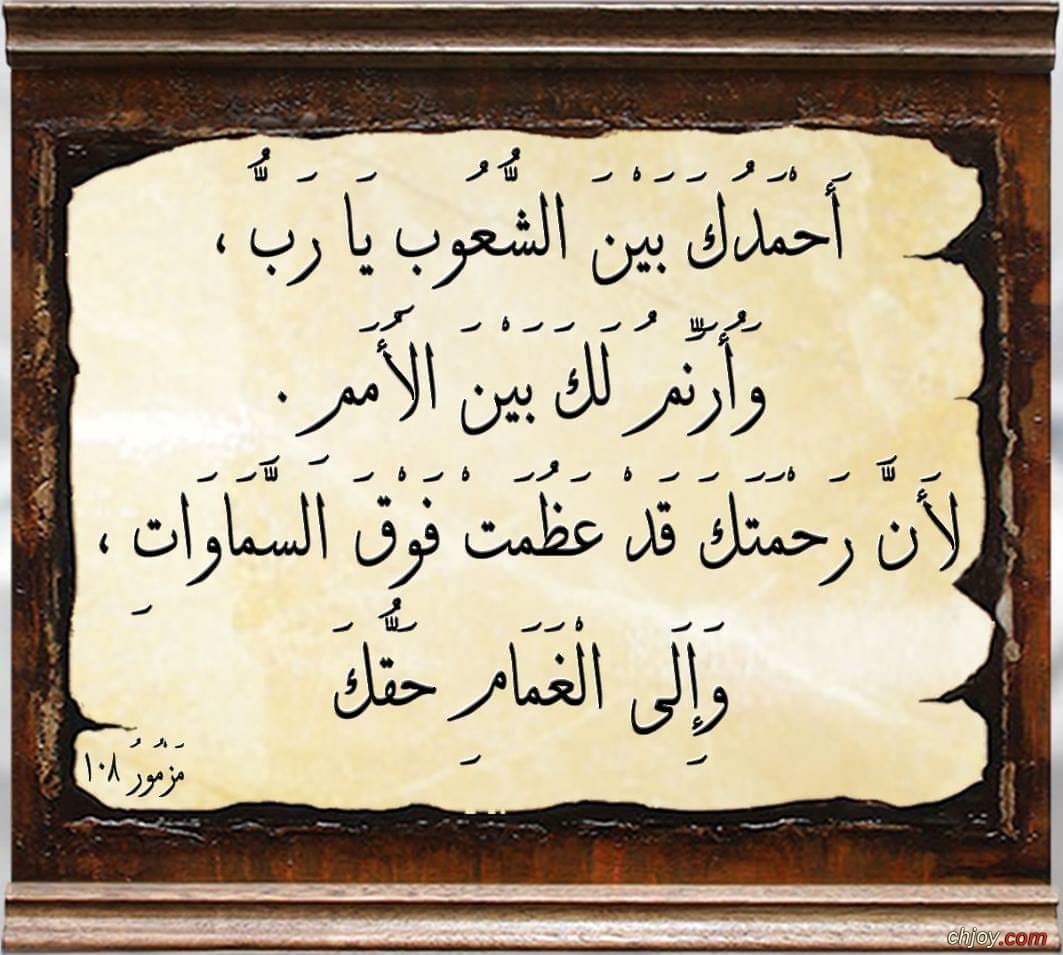 أَحْمَدُكَ بَيْنَ الشُّعُوبِ يَا رَبُّ ،
وَأُرَنِّمُ لَكَ بَيْنَ الأُمَمِ .
لأَنَّ رَحْمَتَكَ قَدْ عَظُمَتْ فَوْقَ السَّمَاوَاتِ ،
وَإِلَى الْغَمَامِ حَقُّكَ
مَزْمُورُ ١٠٨
chjoy.com